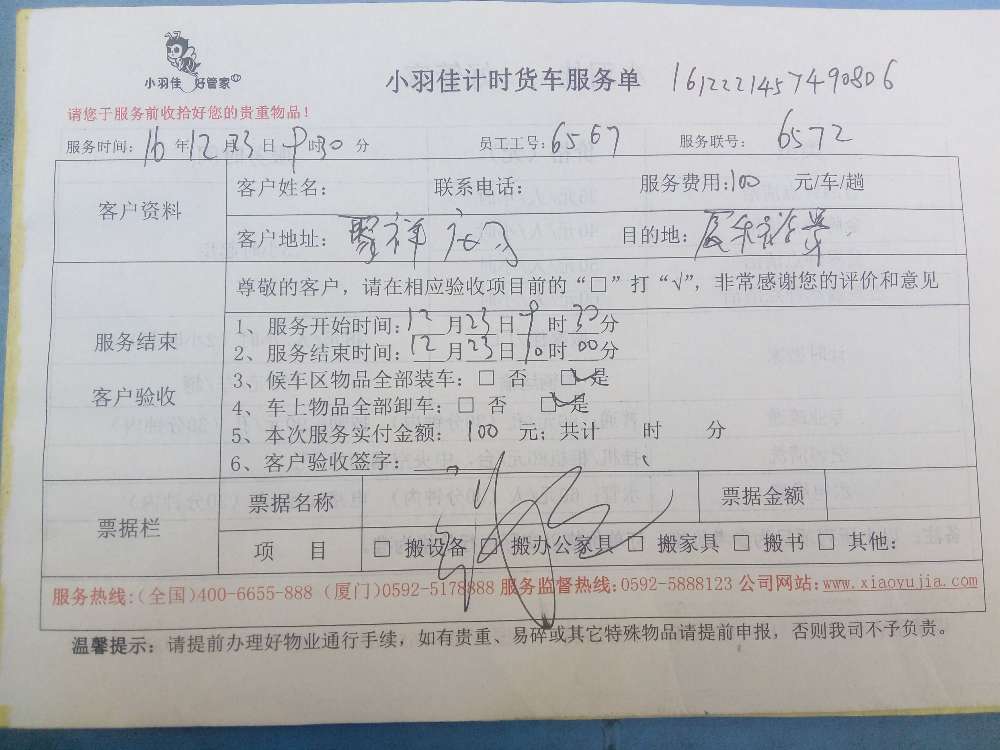 小羽佳 好管家
小羽佳计时货车服务单 1612221457490806
请您于服务前收拾好您的贵重物品！
服务时间：16年12月23日9时30分 员工工号：6567 服务联号：6572
客户资料
客户姓名： 联系电话： 服务费用：100 元/车/趟
客户地址：聚祥 目的地：
服务结束
客户验收
尊敬的客户，请在相应验收项目前的“□”打“√”，非常感谢您的评价和意见
1、服务开始时间：12月23日9时30分
2、服务结束时间：12月23日10时00分
3、候车区物品全部装车：□ 否 □是
4、车上物品全部卸车：□ 否 □是
5、本次服务实付金额： 100 元；共计 时 分
6、客户验收签字：
票据栏
票据名称 票据金额
项 目 □ 搬设备 □ 搬办公家具 □ 搬家具 □ 搬书 □ 其他：
服务热线：(全国)400-6655-888 (厦门)0592-5178888 服务监督热线：0592-5888123 公司网站：www.xiaoyujia.com
温馨提示：请提前办理好物业通行手续，如有贵重、易碎或其它特殊物品请提前申报，否则我司不予负责。